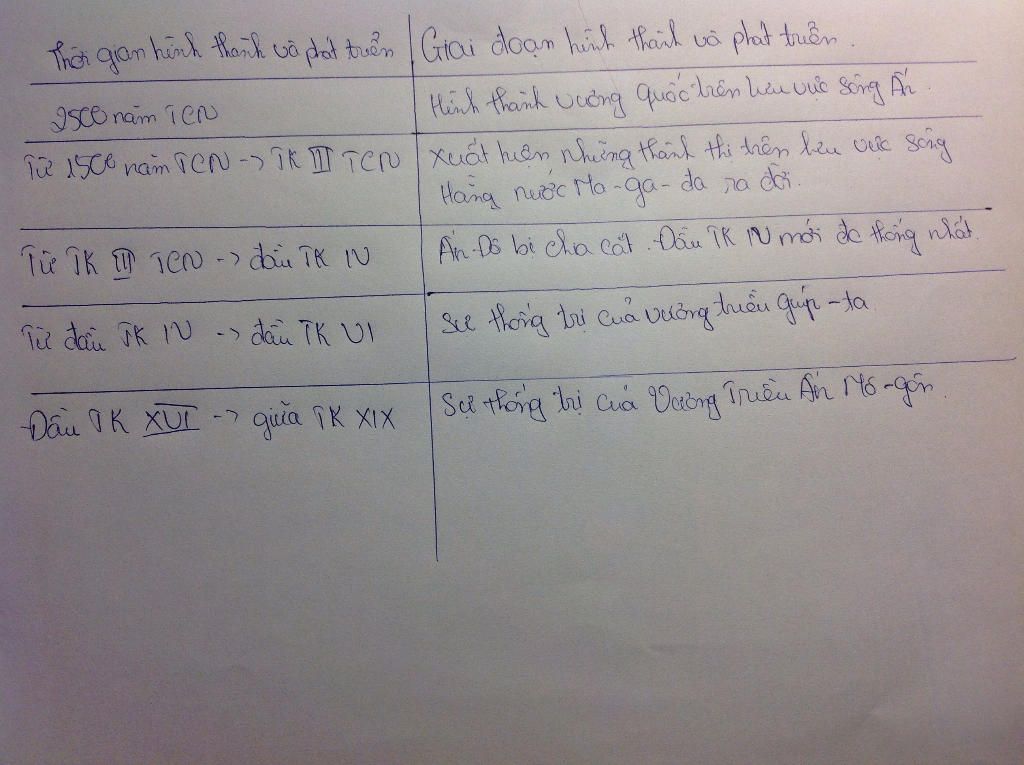 Thời gian hình thành và phát triển
Giai đoạn hình thành và phát triển.
2500 năm TCN
Hình thành vương quốc trên lưu vực sông Ấn.
Từ 1500 năm TCN -> TK III TCN
Xuất hiện những thành thị trên lưu vực sông
Hằng nước Ma-ga-đa ra đời.
Từ TK III TCN -> đầu TK IV
Ấn-Độ bị chia cắt. Đầu TK IV mới đc thống nhất.
Từ đầu TK IV -> đầu TK VI
Sự thống trị của vương triều Gúp-ta
Đầu TK XVI -> giữa TK XIX
Sự thống trị của Vương Triều Ấn Mô-gôn.